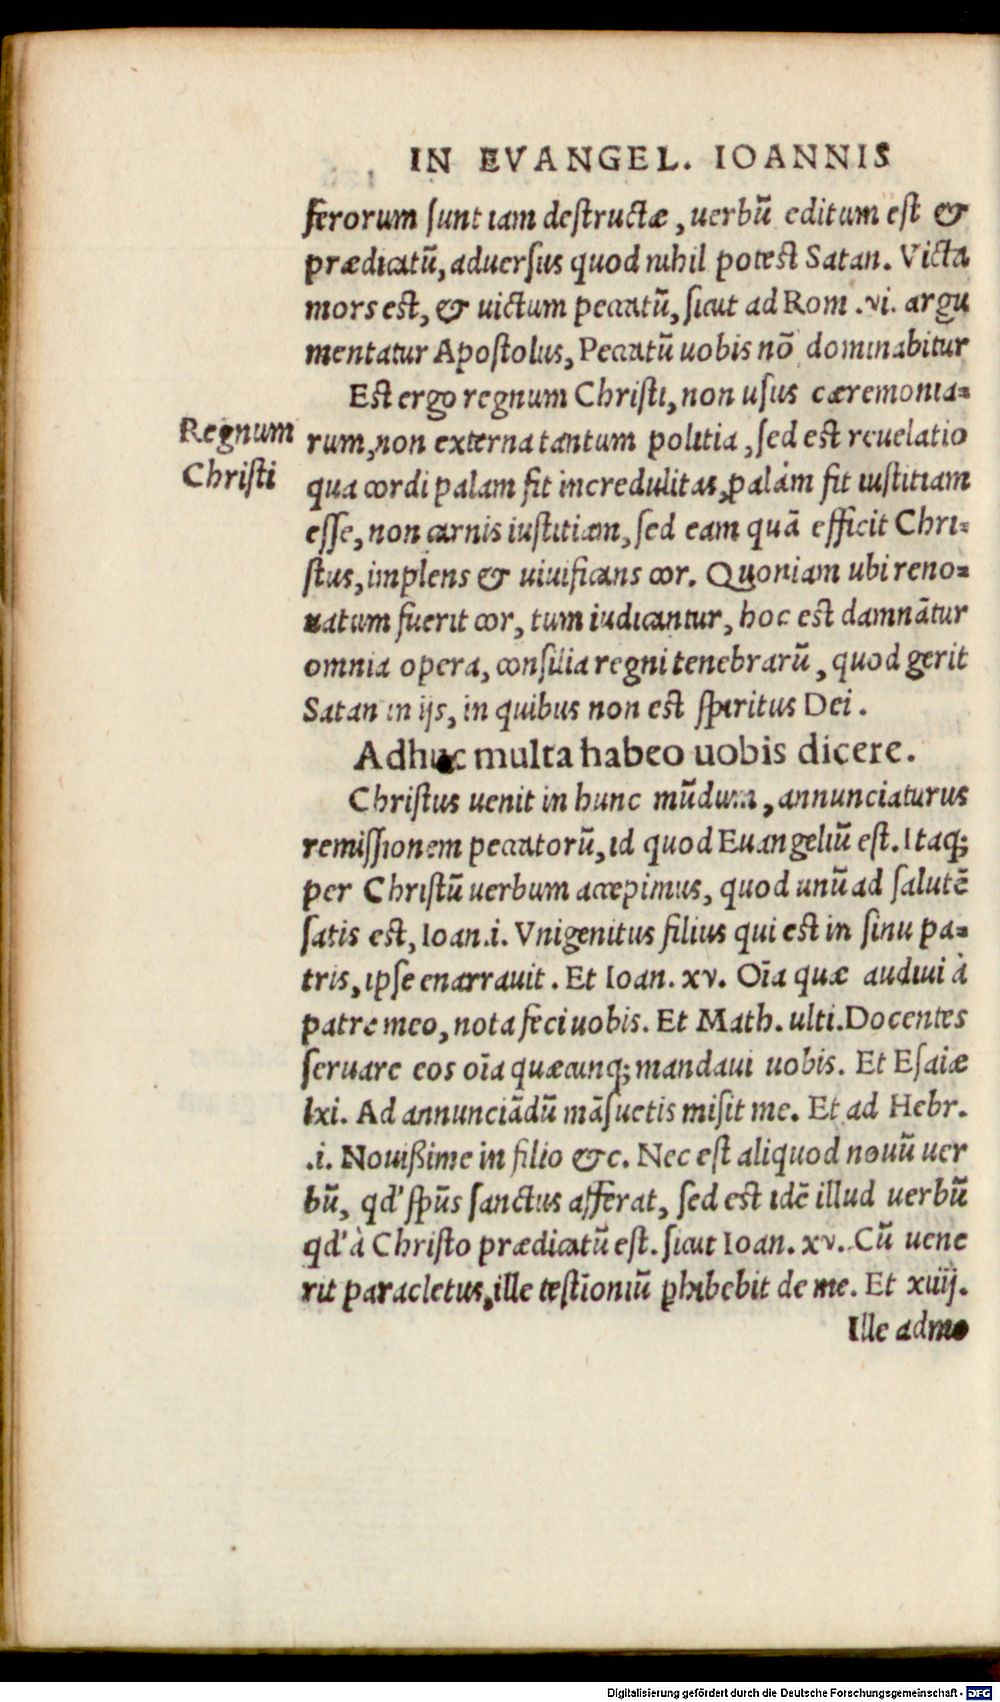 IN EVANGEL. IOANNIS
ferorum ſunt iam deſtructæ, uerbū editum est &
prædicatū, aduerſus quod nihil potest Satan. Victa
mors est, & uictum peccatū, ſicut ad Rom .vi. argu
mentatur Apoſtolus, Peccatū uobis nō dominabitur
Est ergo regnum Chriſti, non uſus cæremonia-
Regnum
Chriſti
rum, non externa tantum politia, ſed est reuelatio
qua cordi palam fit incredulitas, palàm fit iuſtitiam
eſſe, non carnis iuſtitiam, ſed eam quā efficit Chri-
ſtus, implens & uiuificans cor. Quoniam ubi reno-
uatum fuerit cor, tum iudicantur, hoc est damnātur
omnia opera, conſilia regni tenebrarū, quod gerit
Satan in ijs, in quibus non est ſpiritus Dei.
Adhuc multa habeo uobis dicere.
Chriſtus uenit in hunc mūdum, annunciaturus
remiſſionem peccatorū, id quod Euangeliū eſt. Itaq;
per Chriſtū uerbum accepimus, quod unū ad ſalutē
ſatis est, Ioan.i. Vnigenitus filius qui est in ſinu pa-
tris, ipſe enarrauit. Et Ioan. xv. Oīa quæ audiui à
patre meo, nota feci uobis. Et Math. ulti. Docentes
ſeruare eos oīa quæcunq; mandaui uobis. Et Eſaiæ
lxi. Ad annunciādū māſuetis miſit me. Et ad Hebr.
.i. Nouißime in filio &c. Nec eſt aliquod nouū uer
bū, qd' ſpūs ſanctus afferat, ſed est idē illud uerbū
qd' à Chriſto prædicatū eſt. ſicut Ioan. xv. Cū uene
rit paracletus, ille teſtīoniū ꝑhibebit de me. Et xiiij.
Ille admo
Digitalisierung gefördert durch die Deutsche Forschungsgemeinschaft - DFG